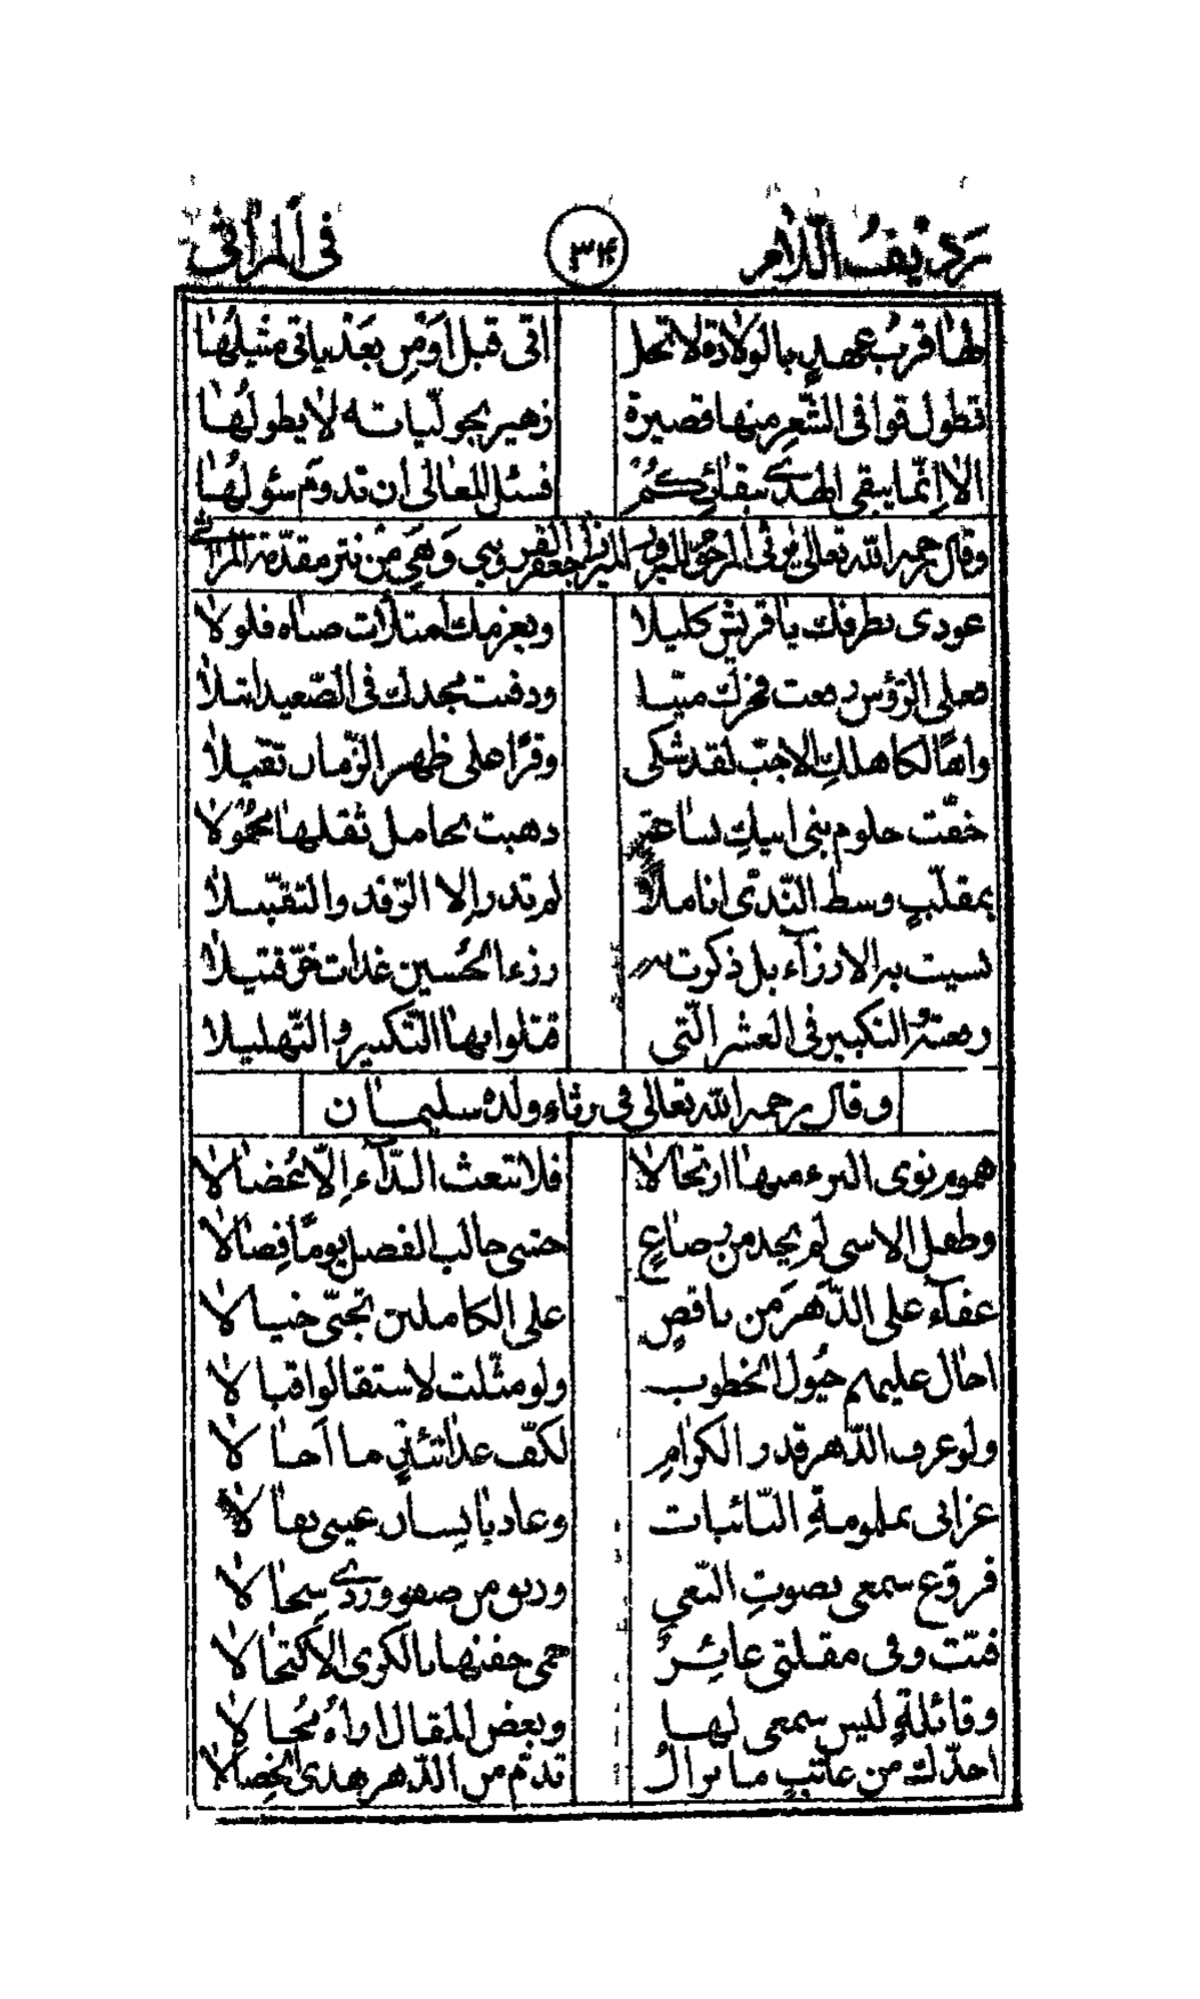 رديف اللام ٣٤ في المراثي
لها قرب عهدٍ بالولادة لا تخل اتى قبل أو من بعد ياتى مثيلها
تطول قوافى الشعر منها قصيرة زهير بحوليات‍ه لا يطولها
الا إنّما يبقى الهدى ببقائكم فسئل المعالى ان تدوم سئولها
وقال رحمه الله تعالى يرثى المرحوم المبرور الميرزا جعفر القزويني وهي من نثر مقدّمة المراثي
عودى بطرفك يا قريش كليلا وبعزمك امتلأت صباه فلولا
فعلى الرؤس رفعت فخرك ميتا ودفنت مجدك فى الصّعيد اثيلا
واهًا لكاهلكِ الاجبّ لقد شكى وقرًا على ظهر الزّمان ثقيلا
خفّت حلوم بنى ابيكِ لساعة ذهبت بحامل ثقلها محمولا
بمقلّبٍ وسط النّدىّ اناملاً لم تدر إلا الرّفد والتقبيلا
نسيت به الارزآء بل ذكرت به رزء الحُسين غدات خرّ قتيلا
رفعته التكبير فى العشر الّتي قتلوا بها التّكبير والتّهليلا
وقال رحمه الله تعالى في رثاء ولده سليمان
همومٌ نوى البرء منها ارتحالا فلا تبعث الدّآء إلّا عُضالا
وطفل الاسى لم يجد من رضاعٍ حتى جالب الفصل يومًا فِصالا
عفآءً على الدّهرَ من ناقصٍ على الكاملين تجنّى خبالا
احال عليهم حُول الخطوب ولو مثّلت لاستقالوا قبالا
ولو عرف الدّهر قدر الكرامِ لكفّ عداتئذٍ ما احالا
غزانى بملومةِ النّائبات وعاد بانسان عينى فعالا
فروّع سمعى بصوتِ النّعي ورنق من صفو وردى سجالا
فبّت وفى مقلتى عائرٌ حمى جفنها بالكرى الاكتحالا
وقائلةٍ ليس سمعى لها وبعض المقال اراهُ مُحالا
احدّك من عاتبٍ ما تزالُ تذمّ من الدّهر هدى الخِصالا